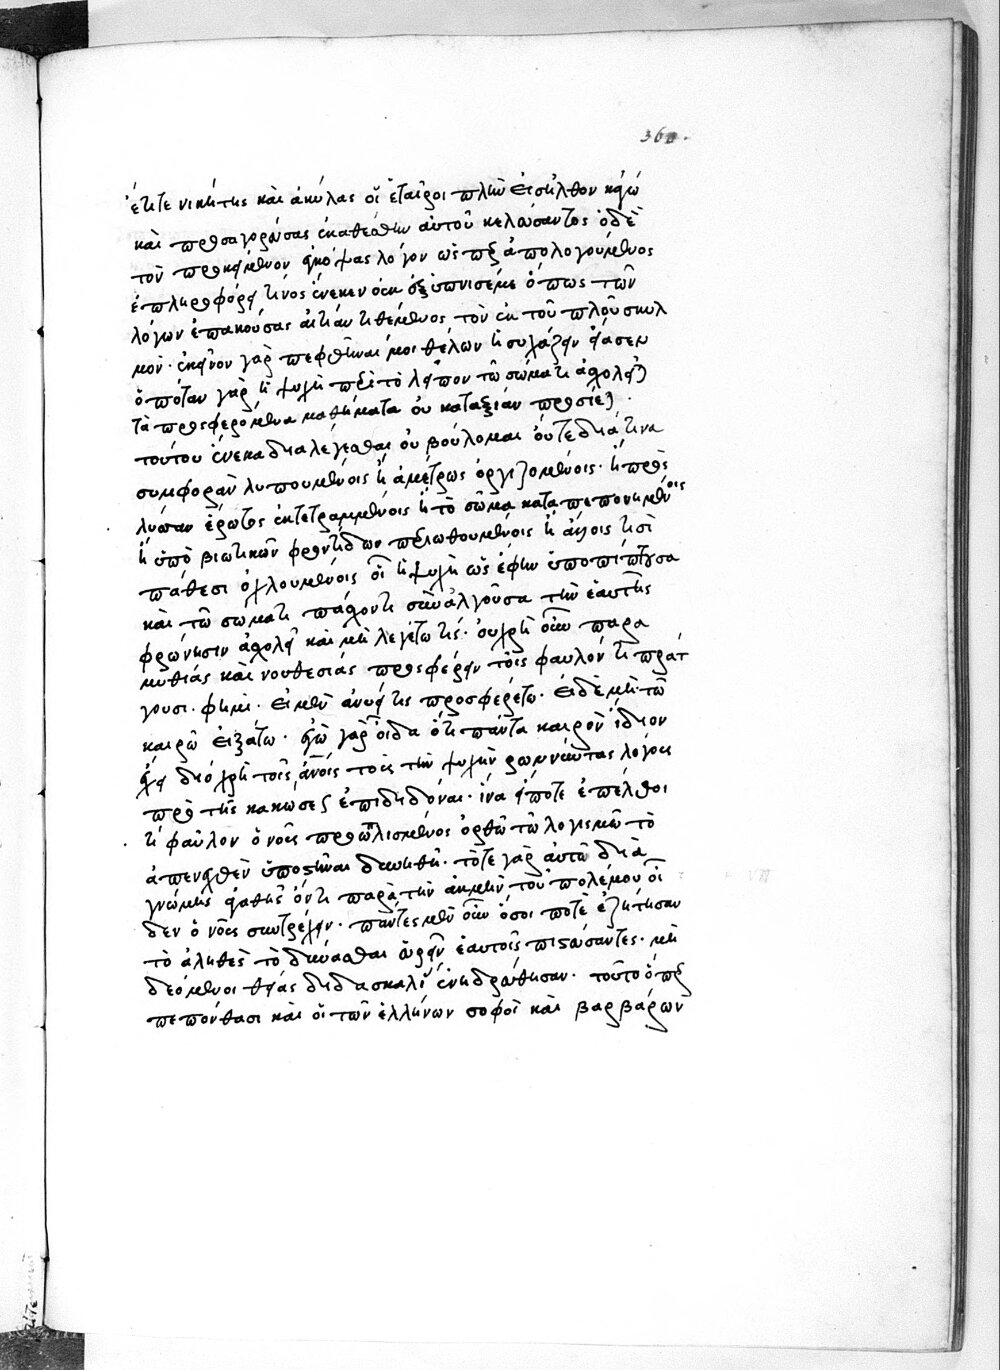 36
ἔτι τε νικήτης καὶ ἀκύλας οἱ ἑταῖροι πλὴν εἰσῆλθον κἀγὼ
καὶ προσαγορεύσας ἐκαθέσθην αὐτοῦ κελεύσαντος ὁ δὲ
τὸν προκείμενον λόγον ὡσπερ ἀπολογούμενος
ἐπληροφόρει τίνος ἕνεκεν οὐκ ἐξύπνισέ με ὅπως τῶν
λόγων ἐπακούσας αἰτίαν τιθέμενος τὸν ἐκ τοῦ πλοῦ σκυλ
μόν · ἐκεῖνον γὰρ πεφθῆναί μοι θέλων ἡσυχάζειν εἴασεν
ὁπόταν γὰρ ἡ ψυχὴ περὶ τὸ λεῖπον τῶ σώματι ἀσχολεῖται
τὰ προσφερόμενα μαθήματα οὐ κατ' ἀξίαν προσίεται ·
τούτου ἕνεκα διαλέγεσθαι οὐ βούλομαι οὔτε διά τινα
συμφορὰν λυπουμένοις ἢ ἀμέτρως ὀργιζομένοις · ἢ πρὸς
λύσσαν ἔρωτος ἐκτετραμμένοις ἢ τὸ σῶμα καταπεπονημένοις
ἢ ὑπὸ βιωτικῶν φροντίδων περιωθουμένοις ἢ ἄλλοις τισὶ
πάθεσι ὀχλουμένοις ὧν ἡ ψυχὴ ὡς ἔφην ὑποπίπτουσα
καὶ τῶ σώματι πάσχοντι συναλγοῦσα τὴν ἑαυτῆς
φρόνησιν ἀσχολεῖ καὶ μὴ λεγέτω τίς · οὐ χρὴ οὖν παρα
μυθίας καὶ νουθεσίας προσφέρειν τοῖς φαυλόν τι πράτ
τουσι · φημί · εἰ μὲν ἀνύει τις προσφερέτω · εἰ δὲ μὴ τῶ
καιρῶ εἰξάτω · ἐγὼ γὰρ οἶδα ὅτι πάντα καιρὸν ἴδιον
ἔχει διὸ χρὴ τοῖς ἀνοις τοὺς τὴν ψυχὴν ῥωννύντας λόγους
πρὸ τῆς κακώσεως ἐπιδιδόναι · ἵνα εἴποτε ἐπέλθοι
τὶ φαῦλον ὁ νοῦς προωπλισμένος ὀρθῶ τῶ λογισμῶ τὸ
ἀπενεχθὲν ὑποστῆναι δυνηθῆ · τότε γὰρ αὐτῶ διὰ
γνώμης ἀγαθῆς ὄντι παρὰ τὴν ἀκμὴν τοῦ πολέμου οἶ
δεν ὁ νοῦς συντρέχειν · πάντες μὲν οὖν ὅσοι ποτὲ ἐζήτησαν
τὸ ἀληθὲς τὸ δύνασθαι εὑρεῖν ἑαυτοῖς πιστεύσαντες · μὴ
δεόμενοι θείας διδασκαλίας ἐνηδρεύθησαν · τοῦτο ὅπερ
πεπόνθασι καὶ οἱ τῶν ἑλλήνων σοφοὶ καὶ βαρβάρων